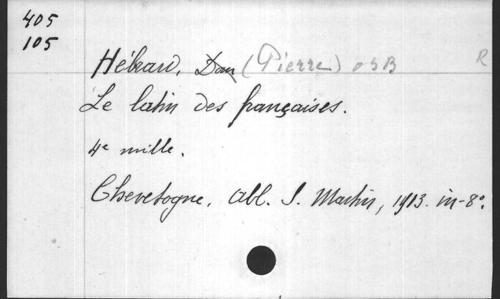 405
105
Hébrard, Dom (Pierre) OSB R
Le latin des françaises.
4e mille.
Chevetogne, Abb. S. Martin, 1913. in-8°.